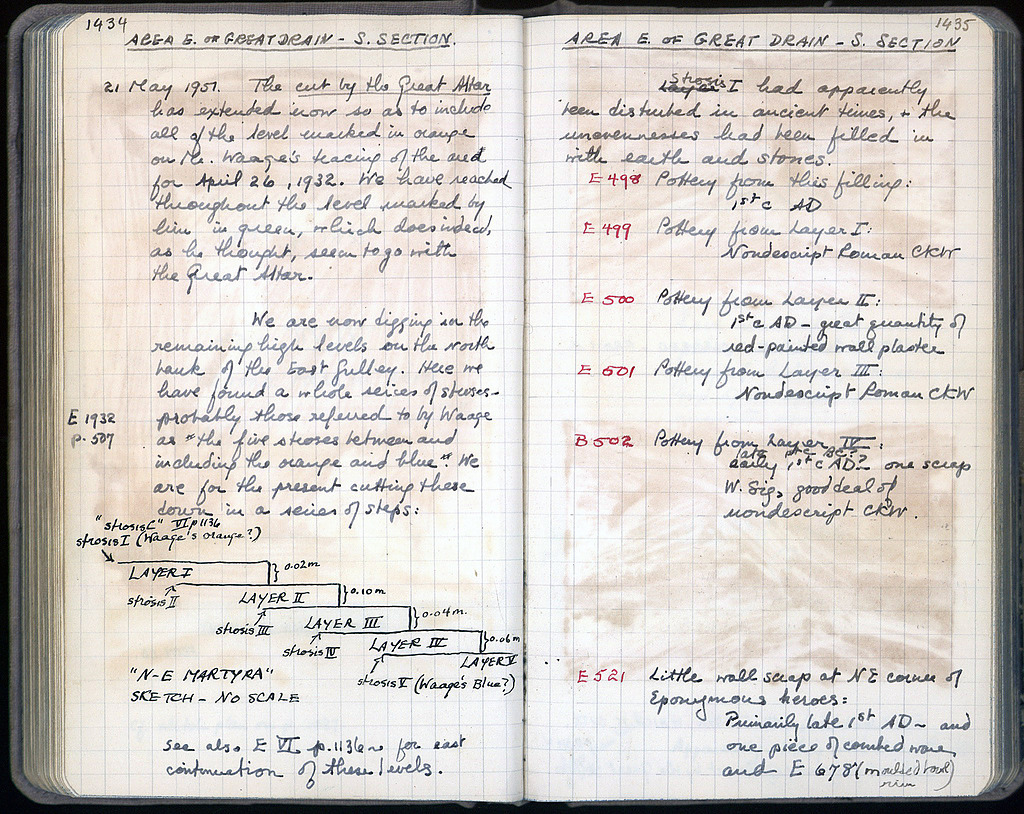 1434
AREA E. OF GREAT DRAIN - S. SECTION.
21 May 1951. The cut by the Great Altar
has extended now so as to include
all of the level marked in orange
on Mr. Waage's tracing of the area
for April 26, 1932. We have reached
throughout the level marked by
him in green, which does indeed,
as he thought, seem to go with
the Great Altar.
We are now digging in the
remaining high levels on the north
bank of the East Gulley. Here we
have found a whole series of stroses -
E 1932
probably those referred to by Waage
p. 507
as "the five stroses between and
including the orange and blue". We
are for the present cutting these
down in a series of steps:
"strosis C" VI p 1136
strosis I (Waage's orange?)
LAYER I
0.02m
strosis II
LAYER II
0.10m
strosis III
LAYER III
0.04m.
strosis IV
LAYER IV
0.06m
LAYER V
strosis V (Waage's Blue?)
"N-E MARTYRA"
SKETCH - NO SCALE
see also E VI p. 1136 ~ for east
continuation of these levels.
1435
AREA E. OF GREAT DRAIN - S. SECTION
Strosis
Layer I had apparently
been disturbed in ancient times, + the
unevennesses had been filled in
with earth and stones.
E 498 Pottery from this filling:
1st c AD
E 499 Pottery from Layer I:
Nondescript Roman CKW
E 500 Pottery from Layer II:
1st c AD - great quantity of
red-painted wall plaster
E 501 Pottery from Layer III:
Nondescript Roman CKW
B 502 Pottery from Layer IV:
late 1st c BC?
early 1st c AD? one scrap
W. Sig, good deal of
nondescript CKW.
E 521 Little wall scrap at NE corner of
Eponymous heroes:
Primarily late 1st AD - and
one piece of combed ware
and E 678 (moulded bowl)
rim